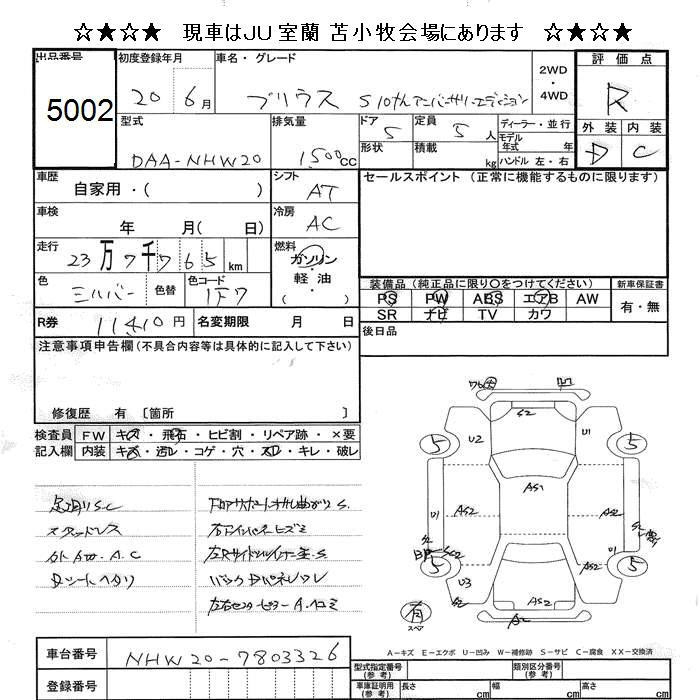 ☆★☆★ 現車はJU室蘭 苫小牧会場にあります ☆★☆★
出品番号 初度登録年月 車名・グレード 2WD・4WD 評価点
5002 20 6月 プリウス S10thアニバーサリーエディション R
型式 排気量 ドア 定員 ディーラー・並行 外装 内装
DAA-NHW20 1,500cc 5 5人 モデル年式 年 D C
形状 積載 kg ハンドル 左・右
車歴 自家用・( ) シフト AT セールスポイント(正常に機能するものに限ります)
車検 年 月( 日) 冷房 AC
走行 23万7千765km 燃料 ガソリン・軽油・( )
色 シルバー 色替 色コード 1F7
装備品(純正品に限り○をつけてください) 新車保証書
PS PW ABS エアB AW 有・無
SR ナビ TV カワ
R券 11410円 名変期限 月 日 後日品
注意事項申告欄(不具合内容等は具体的に記入して下さい)
修復歴 有 [箇所 ]
検査員 FW キズ・飛石・ヒビ割・リペア跡・×要
記入欄 内装 キズ・汚レ・コゲ・穴・スレ・キレ・破レ
足廻りS.C
スタッドレス
A.C
Dシートヘタリ
コアサポート S.
右 ヒズミ
左Rサイドシル S
バックDパネル
左右センターピラーA.ヘコミ
S2
U2
U1
5
5
AS1
U1
AS2
AS2
S2
U1
5
5
U3
S2
AS2
AS2
A2
有
スペア
A-キズ E-エクボ U-凹み W-補修跡 S-サビ C-腐食 XX-交換済
車台番号 NHW20-7803326
登録番号
型式指定番号(参考) 類別区分番号(参考)
車庫証明用(参考) 長さ cm 幅 cm 高さ cm